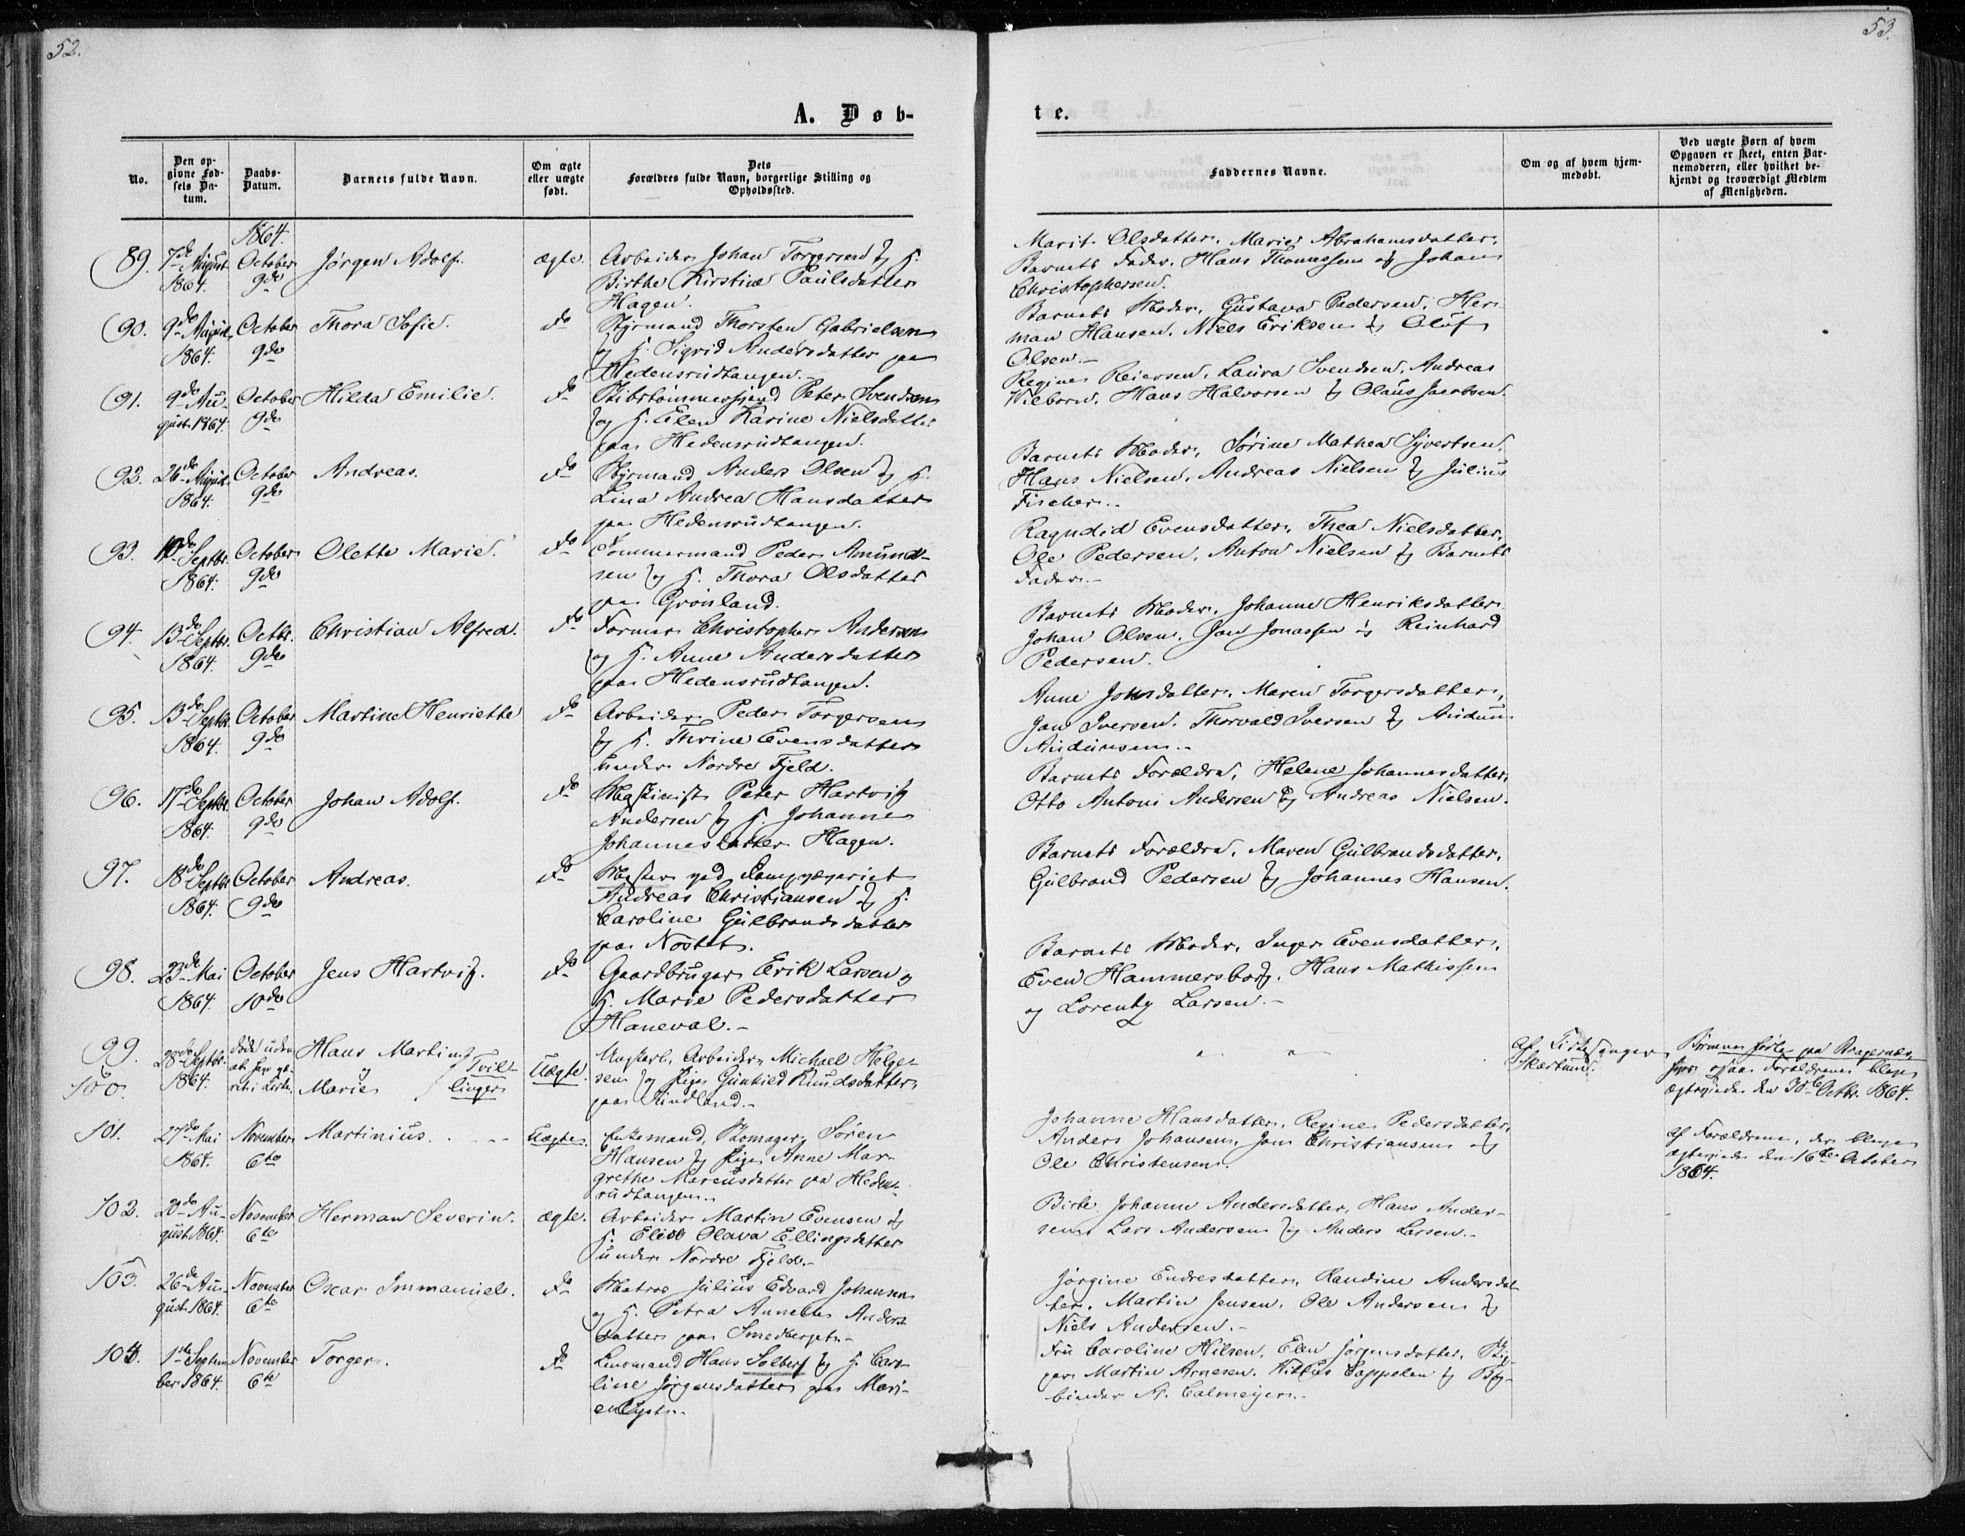 52.
A. Døb-
No.
Den op-
givne Fød-
sels Da-
tum.
Daabs-
Datum.
Barnets fulde Navn.
Om ægte
eller uægte
født.
Dets
Forældres fulde Navn, borgerlige Stilling og
Opholdssted.
1864.
89. 7de August 1864. October 9de Jørgen Adolf. ægte. Arbeider Johan Torgersen og H.
Birthe Kirstine Paulsdatter
Hagen.
90. 9de August 1864. October 9de Thora Sofie. do Styrmand Thorsten Gabrielsen
og H. Sigrid Andersdatter paa
Hedensrudtangen.
91. 9de August 1864. October 9de Hilda Emilie. do Peter Svendsen
og H. Elen Karine Nielsdatter
paa Hedensrudtangen.
92. 26de August 1864. October 9de Andreas. do Styrmand Anders Olsen og H.
Lina Andrea Hansdatter
paa Hedensrudtangen.
93. 10de Septbr. 1864. October 9de Olette Marie. do Tømmermand Peder Amund-
sen og H. Thora Olsdatter
paa Grønland.
94. 13de Septbr. 1864. Octbr. 9de Christian Alfred. do Former Christopher Andersen
og H. Anne Andersdatter
paa Hedensrudtangen.
95. 13de Septbr. 1864. October 9de Martine Henriette do Arbeider Peder Torgersen
og H. Thrine Evensdatter
under Nordre Fjeld.
96. 17de Septbr. 1864. October 9de Johan Adolf. do Maskinist Peter Hartvig
Andersen og H. Johanne
Johannesdatter Hagen.
97. 18de Septbr. 1864. October 9de Andreas. do Mester ved Dampvæveriet
Andreas Christiansen og H.
Caroline Gulbrandsdatter
paa Nøstet.
98. 23de Mai 1864. October 10de Jens Hartvig. do Gaardbruger Erik Larsen og
H. Marie Pedersdatter
Haneval.
99. og 100. 28de Septbr. 1864. døde uden at Hans Martin og Marie Tvillinger Uægte. Ungkarl, Arbeider Michael Helge-
sen og Pige Gunhild Knudsdatter
paa
101. 27de Mai 1864. November 6te Martinius. Uægte. Enkemand, Skomager Søren
Hansen og Pige Anne Mar-
grethe Marcusdatter paa Hedens-
rudtangen.
102. 20de August 1864. November 6te Herman Severin. ægte. Arbeider Martin Evensen og
H. Elise Olava Ellingsdatter
under Nordre Fjeld.
103. 26de August 1864. November 6te Oscar Immanuel. do Matros Julius Edvard Johansen
og H. Petra Annette Anders-
datter paa Smedberget.
104. 1ste September 1864. November 6te Torger. do Lensmand Hans Solberg og H. Caro-
line Jørgensdatter paa Mari-
enlyst.
53.
te.
Faddernes Navne.
Om og af hvem hjem-
medøbt.
Ved uægte Børn af hvem
Opgaven er skeet, enten Bar-
nemoderen, eller hvilket be-
kjendt og troværdigt Medlem
af Menigheden.
Marit Olsdatter, Marie Abrahamsdatter,
Barnets Fader, Hans Thomassen og Johan
Christophersen.
Barnets Moder, Gustava Pedersen, Her-
man Hansen, Niels Eriksen og Oluf
Olsen.
Regine Reiersen, Laura Svendsen, Andreas
Hans Halvorsen og Olaus Jacobsen.
Barnets Moder, Sørine Mathea Syvertsen,
Hans Nielsen, Andreas Nielsen og Julius
Fischer.
Ragndid Evensdatter, Thea Nielsdatter,
Ole Pedersen, Anton Nielsen og Barnets
Fader.
Barnets Moder, Johanne Henriksdatter
Johan Olsen, Jan Jonassen og Reinhard
Pedersen.
Anne Jonsdatter, Maren Torgersdatter,
Jan Iversen, Thorvald Iversen og Audun
Audunsen.
Barnets Forældre, Helene Johannesdatter,
Otto Antoni Andersen og Andreas Nielsen.
Barnets Forældre, Maren Gulbrandsdatter,
Gulbrand Pedersen og Johannes Hansen.
Barnets Moder, Inger Evensdatter,
Even Hammersborg, Hans Mathissen
og Lorentz Larsen.
" "
Af
Børnene fødte paa Bragernes,
Forældrene bleve
ægteviede den 30te Octbr. 1864.
Johanne Hansdatter, Regine Pedersdatter,
Anders Johansen, Jan Christiansen og
Ole Christensen.
af Forældrene, der bleve
ægteviede den 16de October
1864.
Birte Johanne Andersdatter, Hans Ander-
sen, Lars Andersen og Anders Larsen.
Jørgine Endresdatter, Randine Andersdat-
ter, Martin Jensen, Ole Andersen og
Niels Andersen.
Fru Caroline Hilsen, Elen Jørgensdatter,
Martin Arnesen, Cappelen og Bog-
binder A. Calmeyer.